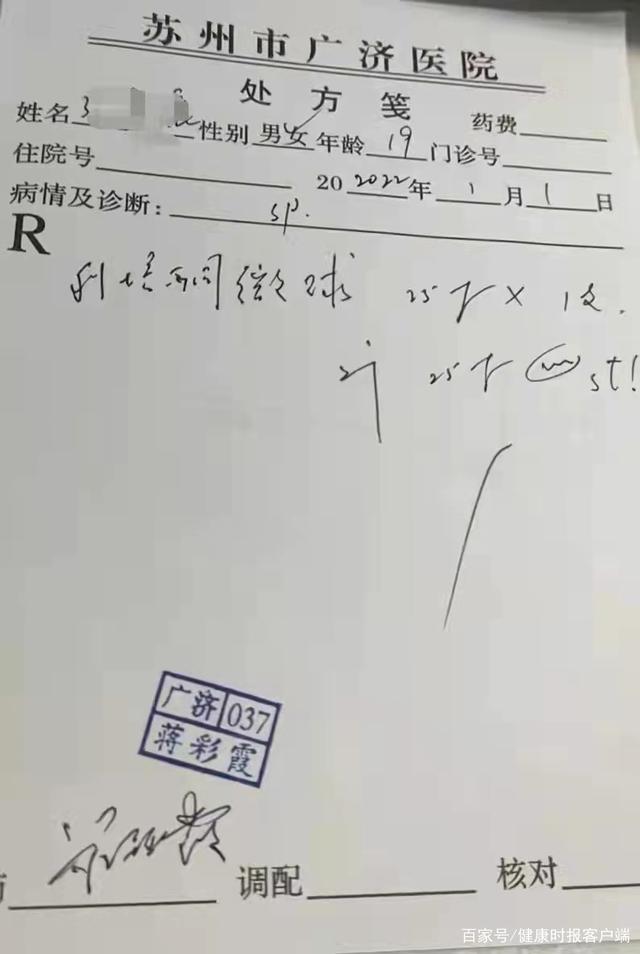 苏州市广济医院
处方笺
姓名 性别 男女 年龄 19 门诊号
药费
住院号 20 2022年 1月 1日
病情及诊断： sp.
R
利培酮微球 25 × 1支.
25 st!
广济 037
蒋彩霞
调配 核对
百家号/健康时报客户端